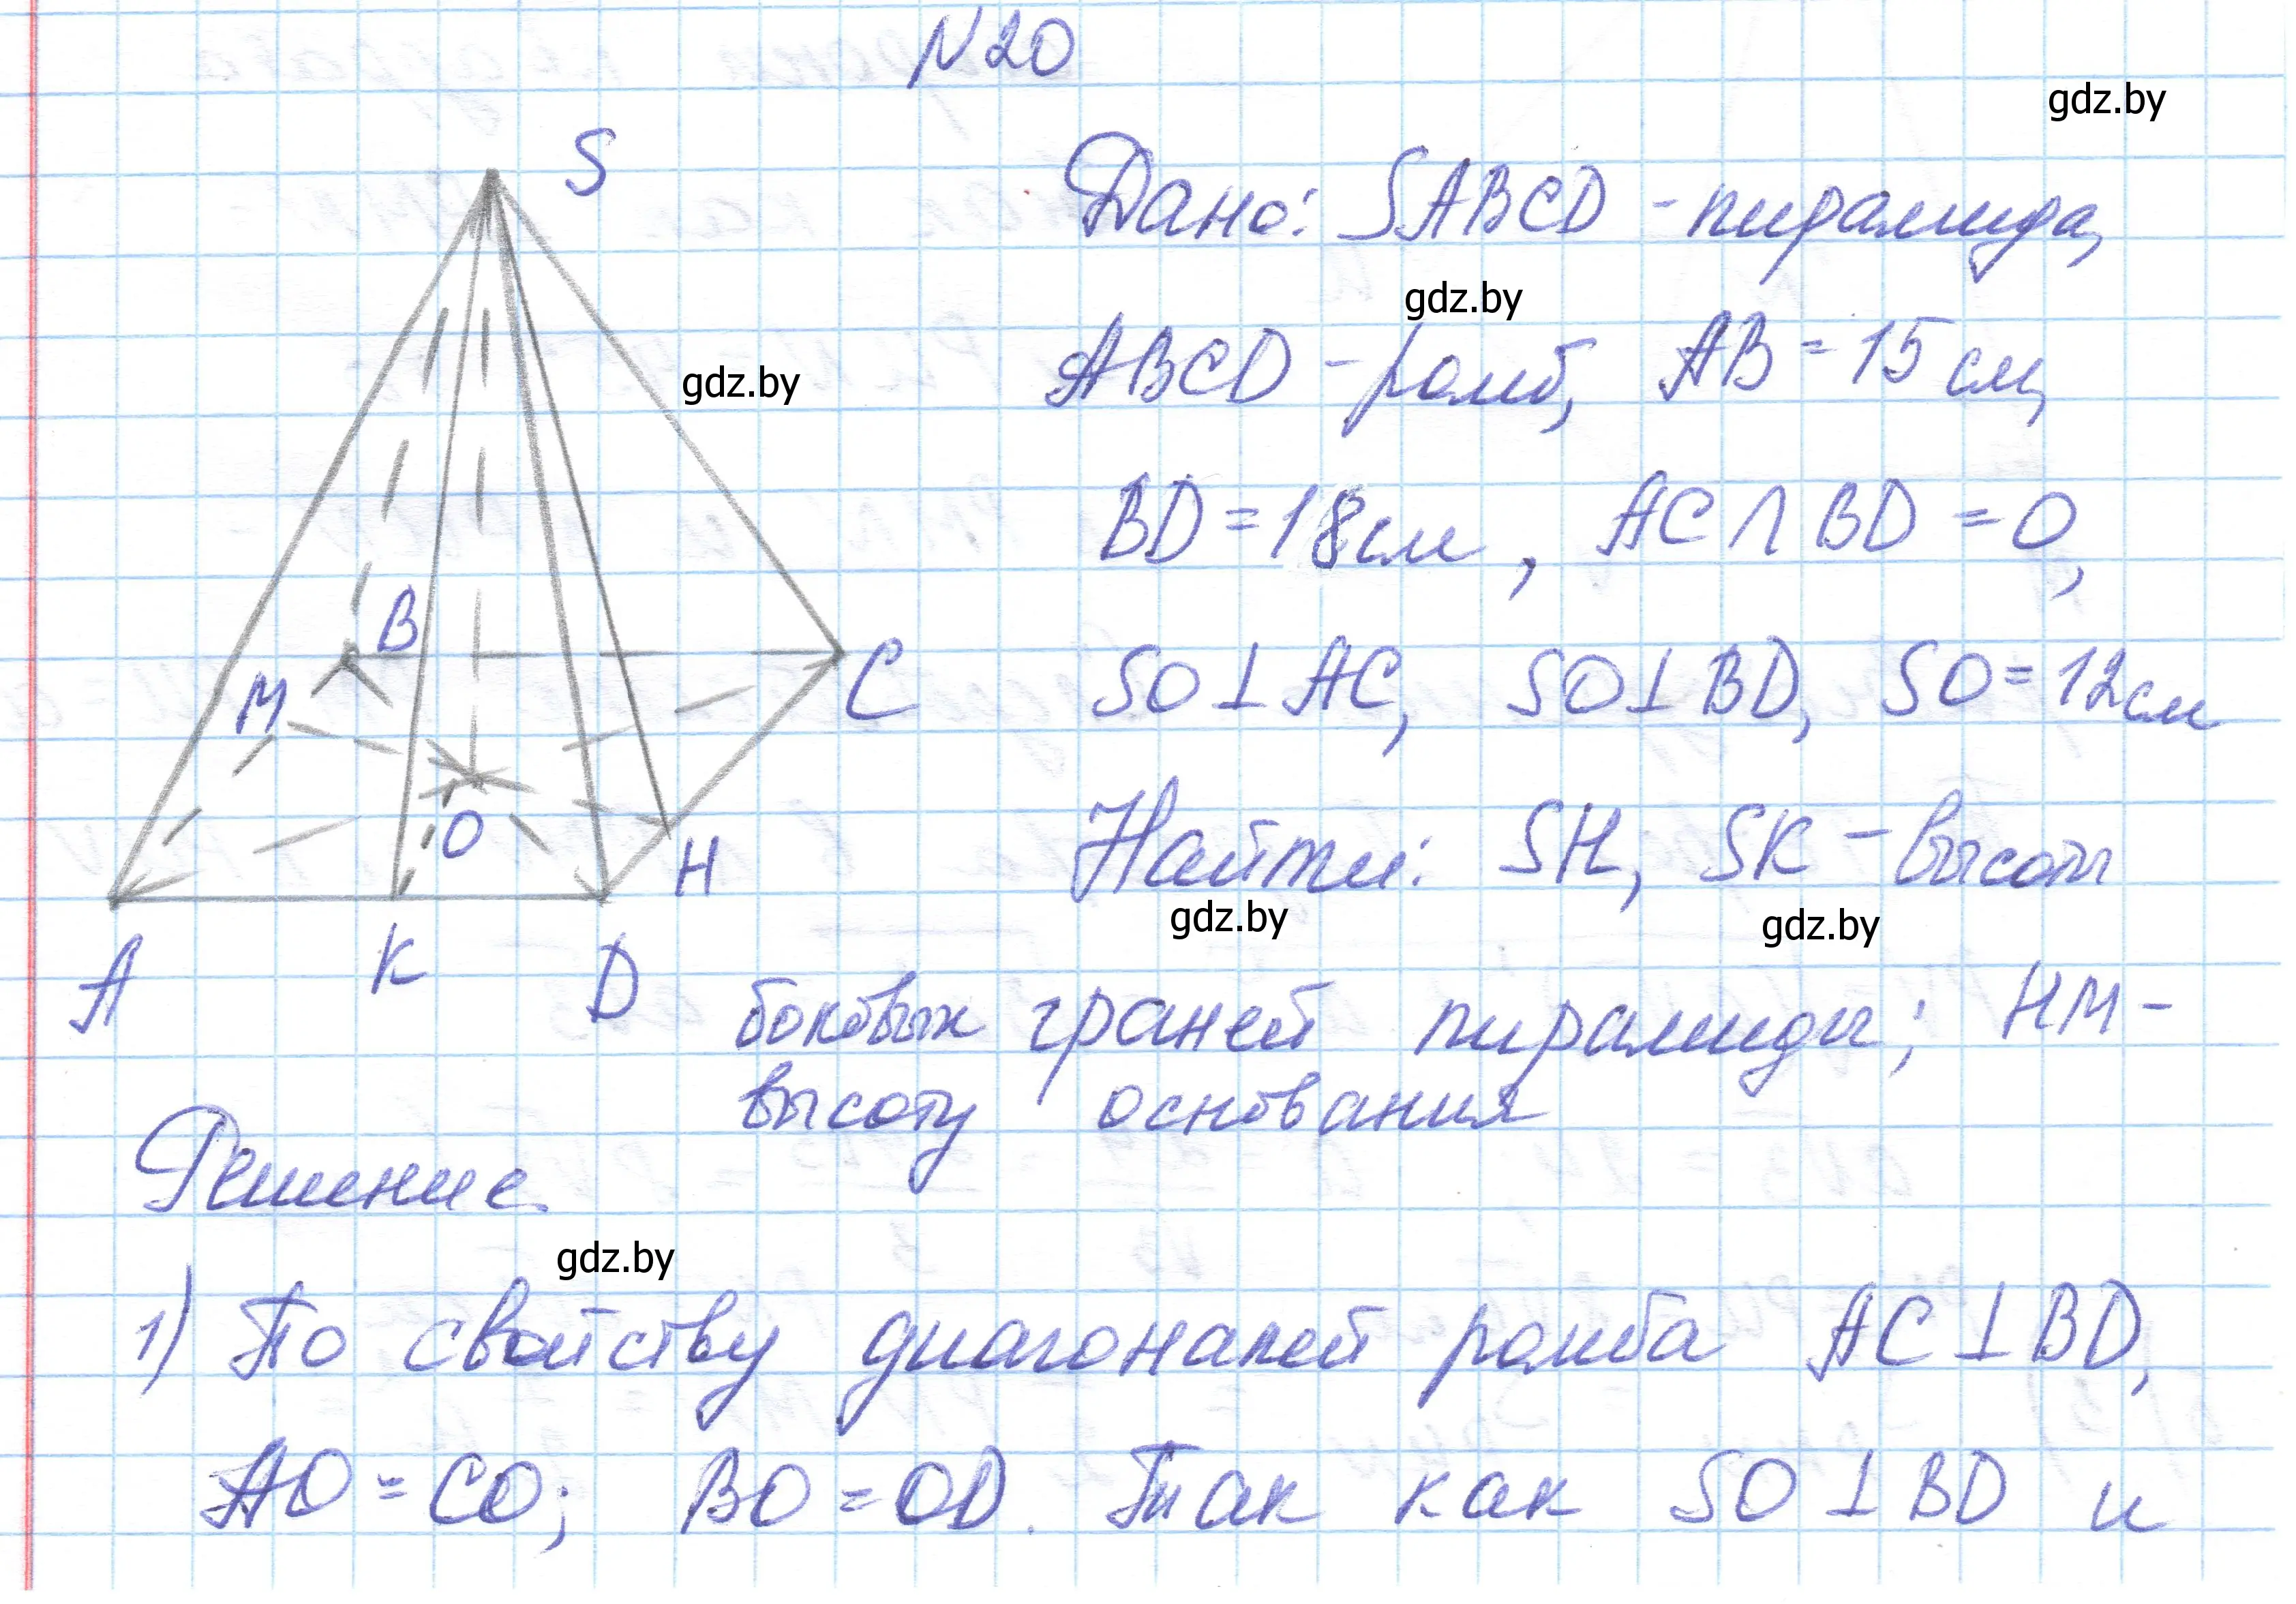 N20
gdz.by
S
Дано: SABCD - пирамида,
gdz.by
ABCD - ромб, AB = 15 см,
gdz.by
BD = 18 см, AC ∩ BD = O,
B
M
C
SO ⊥ AC, SO ⊥ BD, SO = 12 см
O
H
Найти: SH, SK - высоты
gdz.by
gdz.by
A
K
D
боковых граней пирамиды; HM -
высоту основания
Решение.
gdz.by
1) По свойству диагоналей ромба AC ⊥ BD,
AO = CO; BO = OD. Так как SO ⊥ BD и